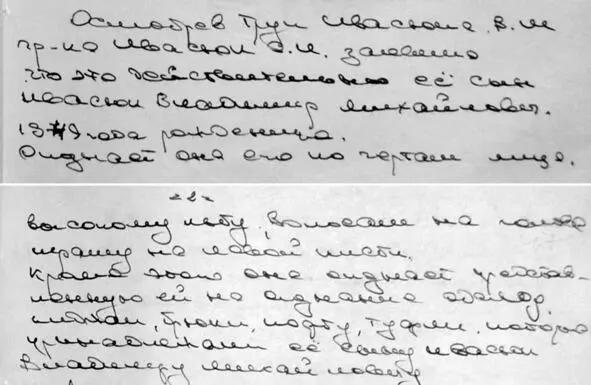 Осмотрев труп Ивасюка В.М
гр-ка Ивасюк С.И. заявила
что это действительно её сын
Ивасюк Владимир Михайлович.
1949 года рождения.
Опознает она его по чертам лица,
-2-
высокому лбу, волосам на голове
шраму на левой кисти.
Кроме этого она опознает представ-
ленную ей на опознание одежду,
плащ, брюки, кофту, туфли, которые
принадлежали её сыну Ивасюк
Владимиру Михайловичу